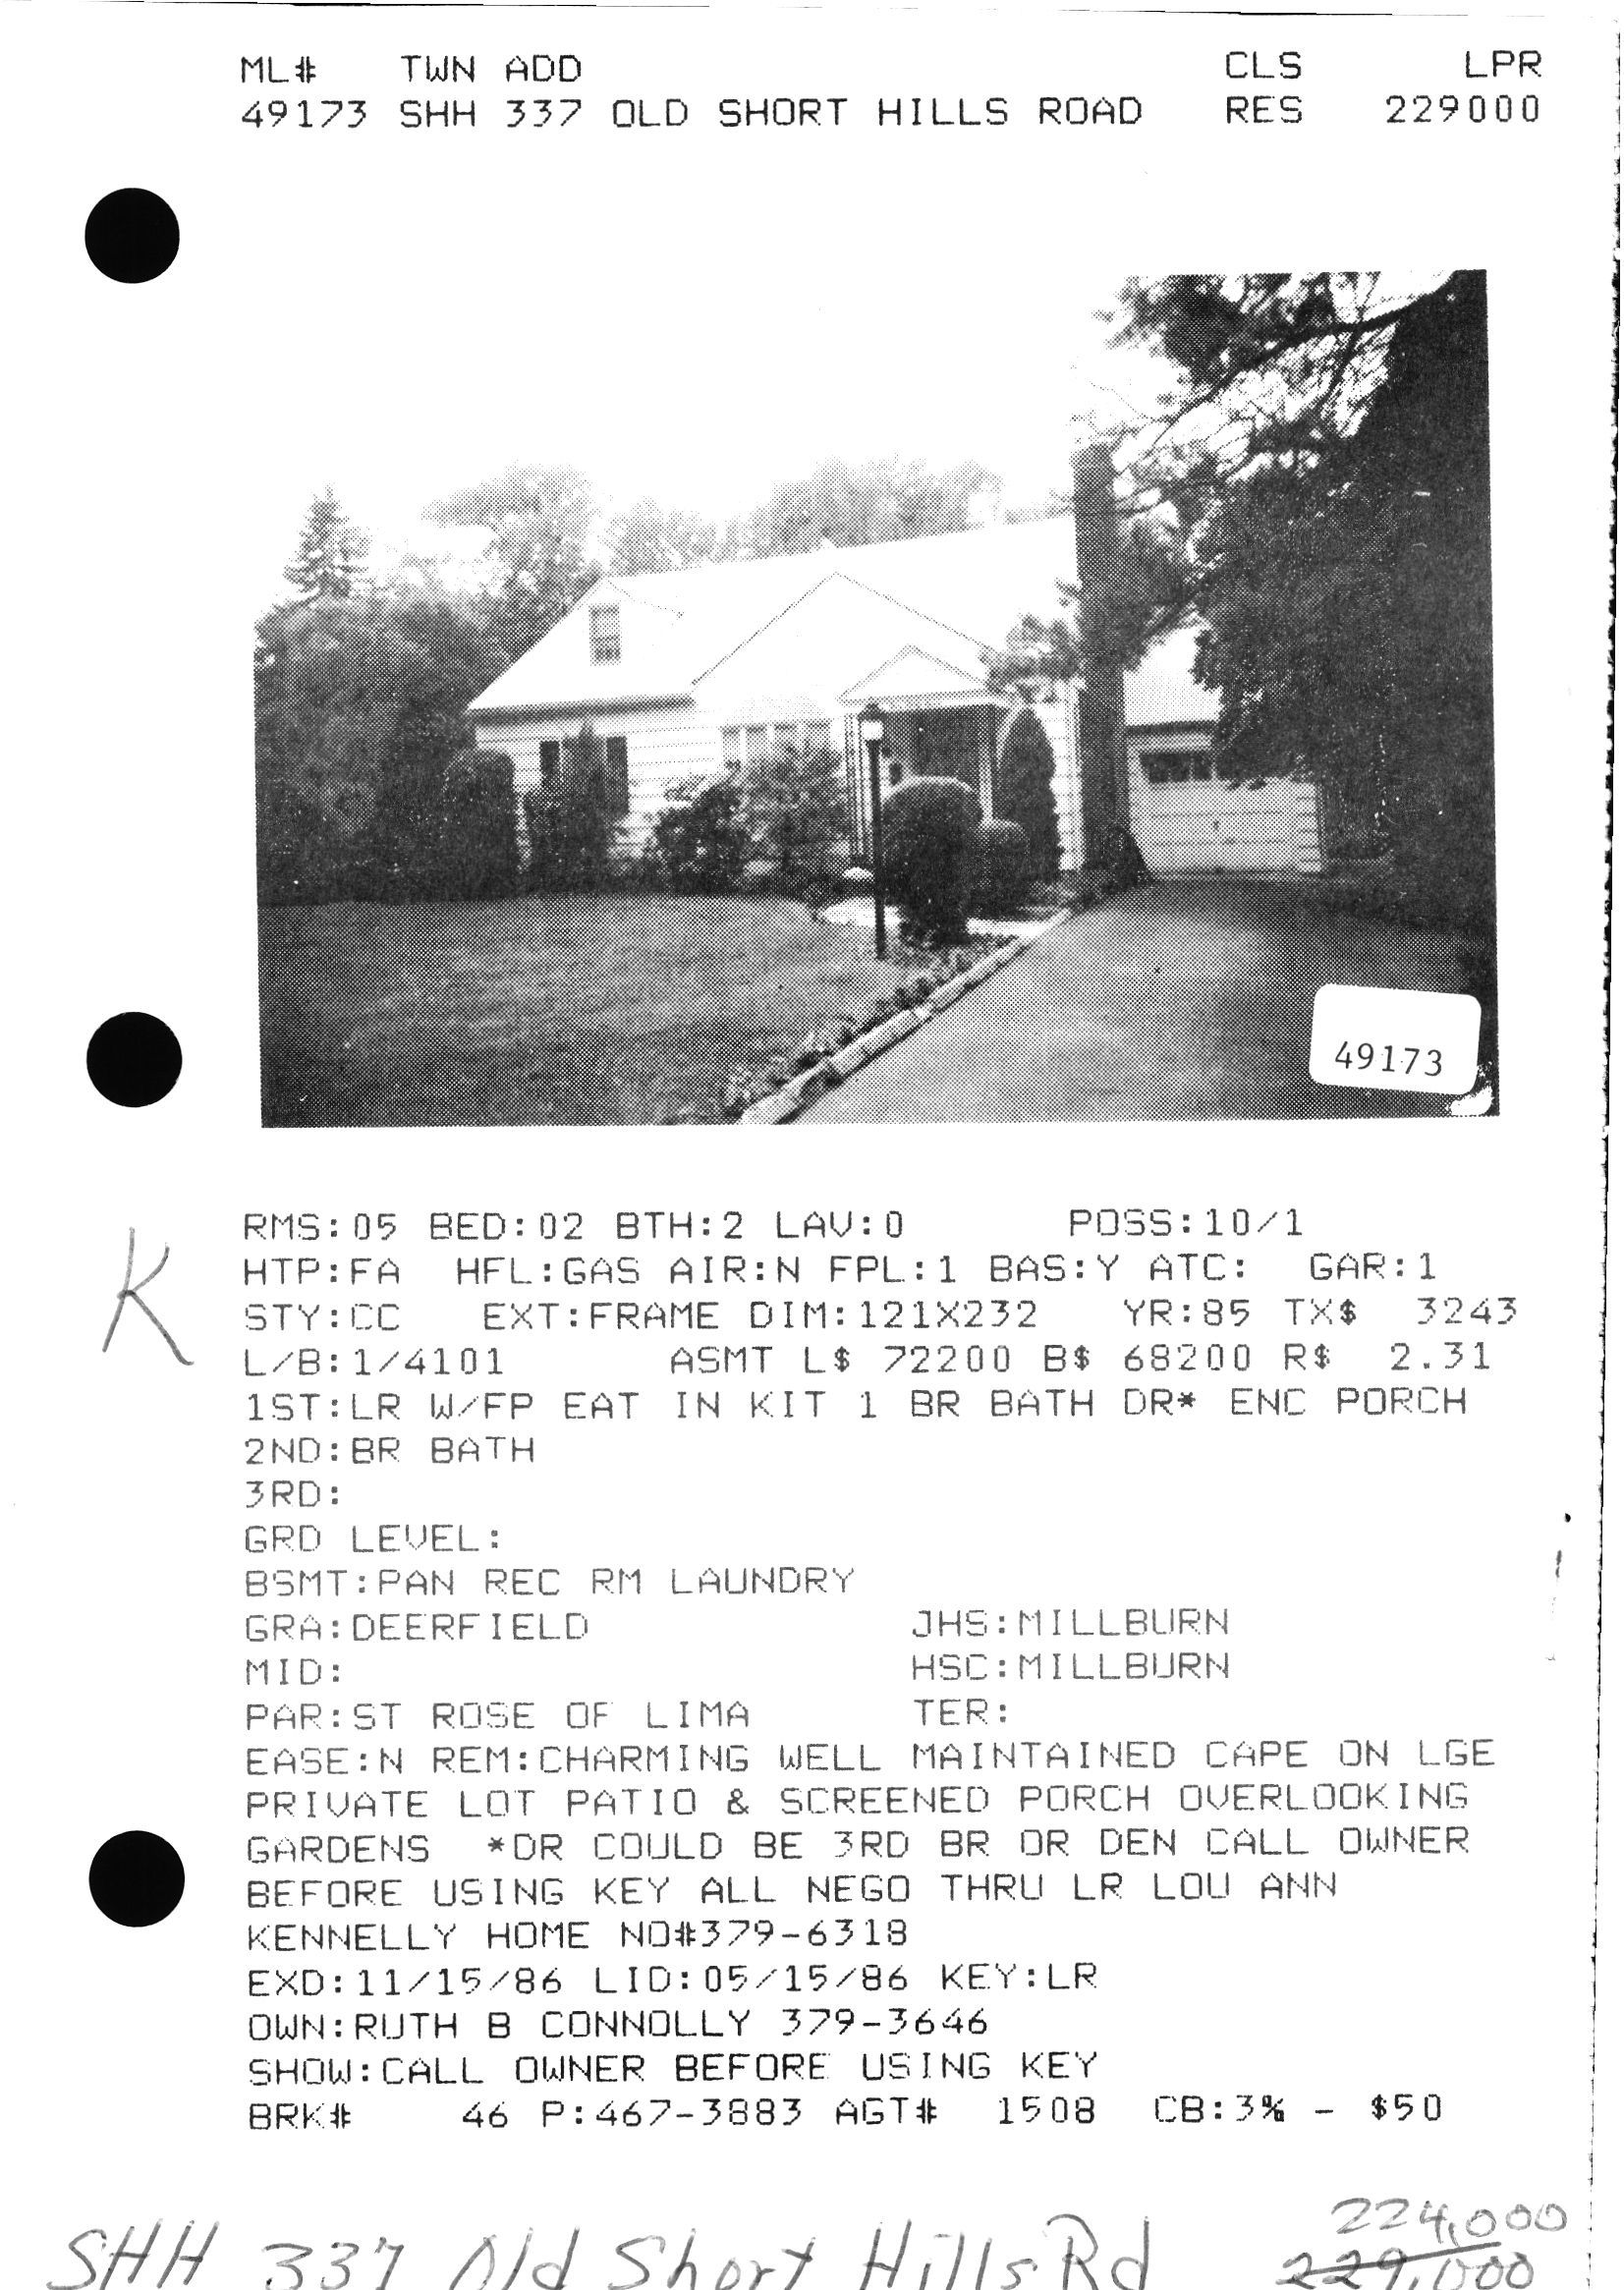 ML# TWN ADD CLS LPR
49173 SHH 337 OLD SHORT HILLS ROAD RES 229000
49173
K
RMS:05 BED:02 BTH:2 LAV:0 POSS:10/1
HTP:FA HFL:GAS AIR:N FPL:1 BAS:Y ATC: GAR:1
STY:CC EXT:FRAME DIM:121X232 YR:85 TX$ 3243
L/B:1/4101 ASMT L$ 72200 B$ 68200 R$ 2.31
1ST:LR W/FP EAT IN KIT 1 BR BATH DR* ENC PORCH
2ND:BR BATH
3RD:
GRD LEVEL:
BSMT:PAN REC RM LAUNDRY
GRA:DEERFIELD JHS:MILLBURN
MID: HSC:MILLBURN
PAR:ST ROSE OF LIMA TER:
EASE:N REM:CHARMING WELL MAINTAINED CAPE ON LGE
PRIVATE LOT PATIO & SCREENED PORCH OVERLOOKING
GARDENS *DR COULD BE 3RD BR OR DEN CALL OWNER
BEFORE USING KEY ALL NEGO THRU LR LOU ANN
KENNELLY HOME NO#379-6318
EXD:11/15/86 LID:05/15/86 KEY:LR
OWN:RUTH B CONNOLLY 379-3646
SHOW:CALL OWNER BEFORE USING KEY
BRK# 46 P:467-3883 AGT# 1508 CB:3% - $50
224,000
SHH 337 Old Short Hills Rd 229,000